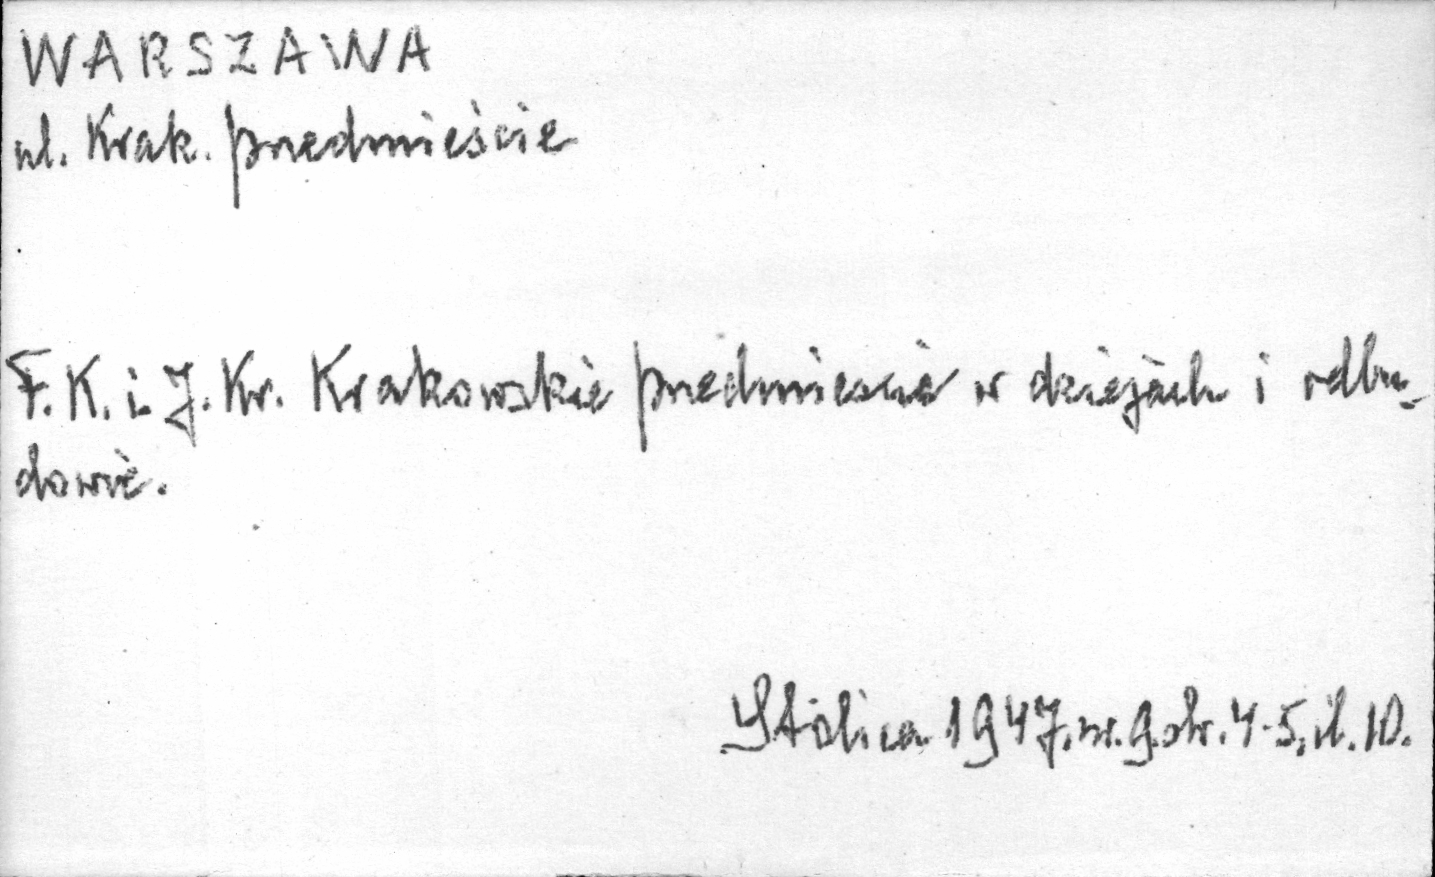 WARSZAWA
ul. Krak. przedmieście
F. K. i J. Kr. Krakowskie przedmieście w dziejach i odbu-
dowie.
Stolica 1947. nr. 9. str. 4-5, il. 10.